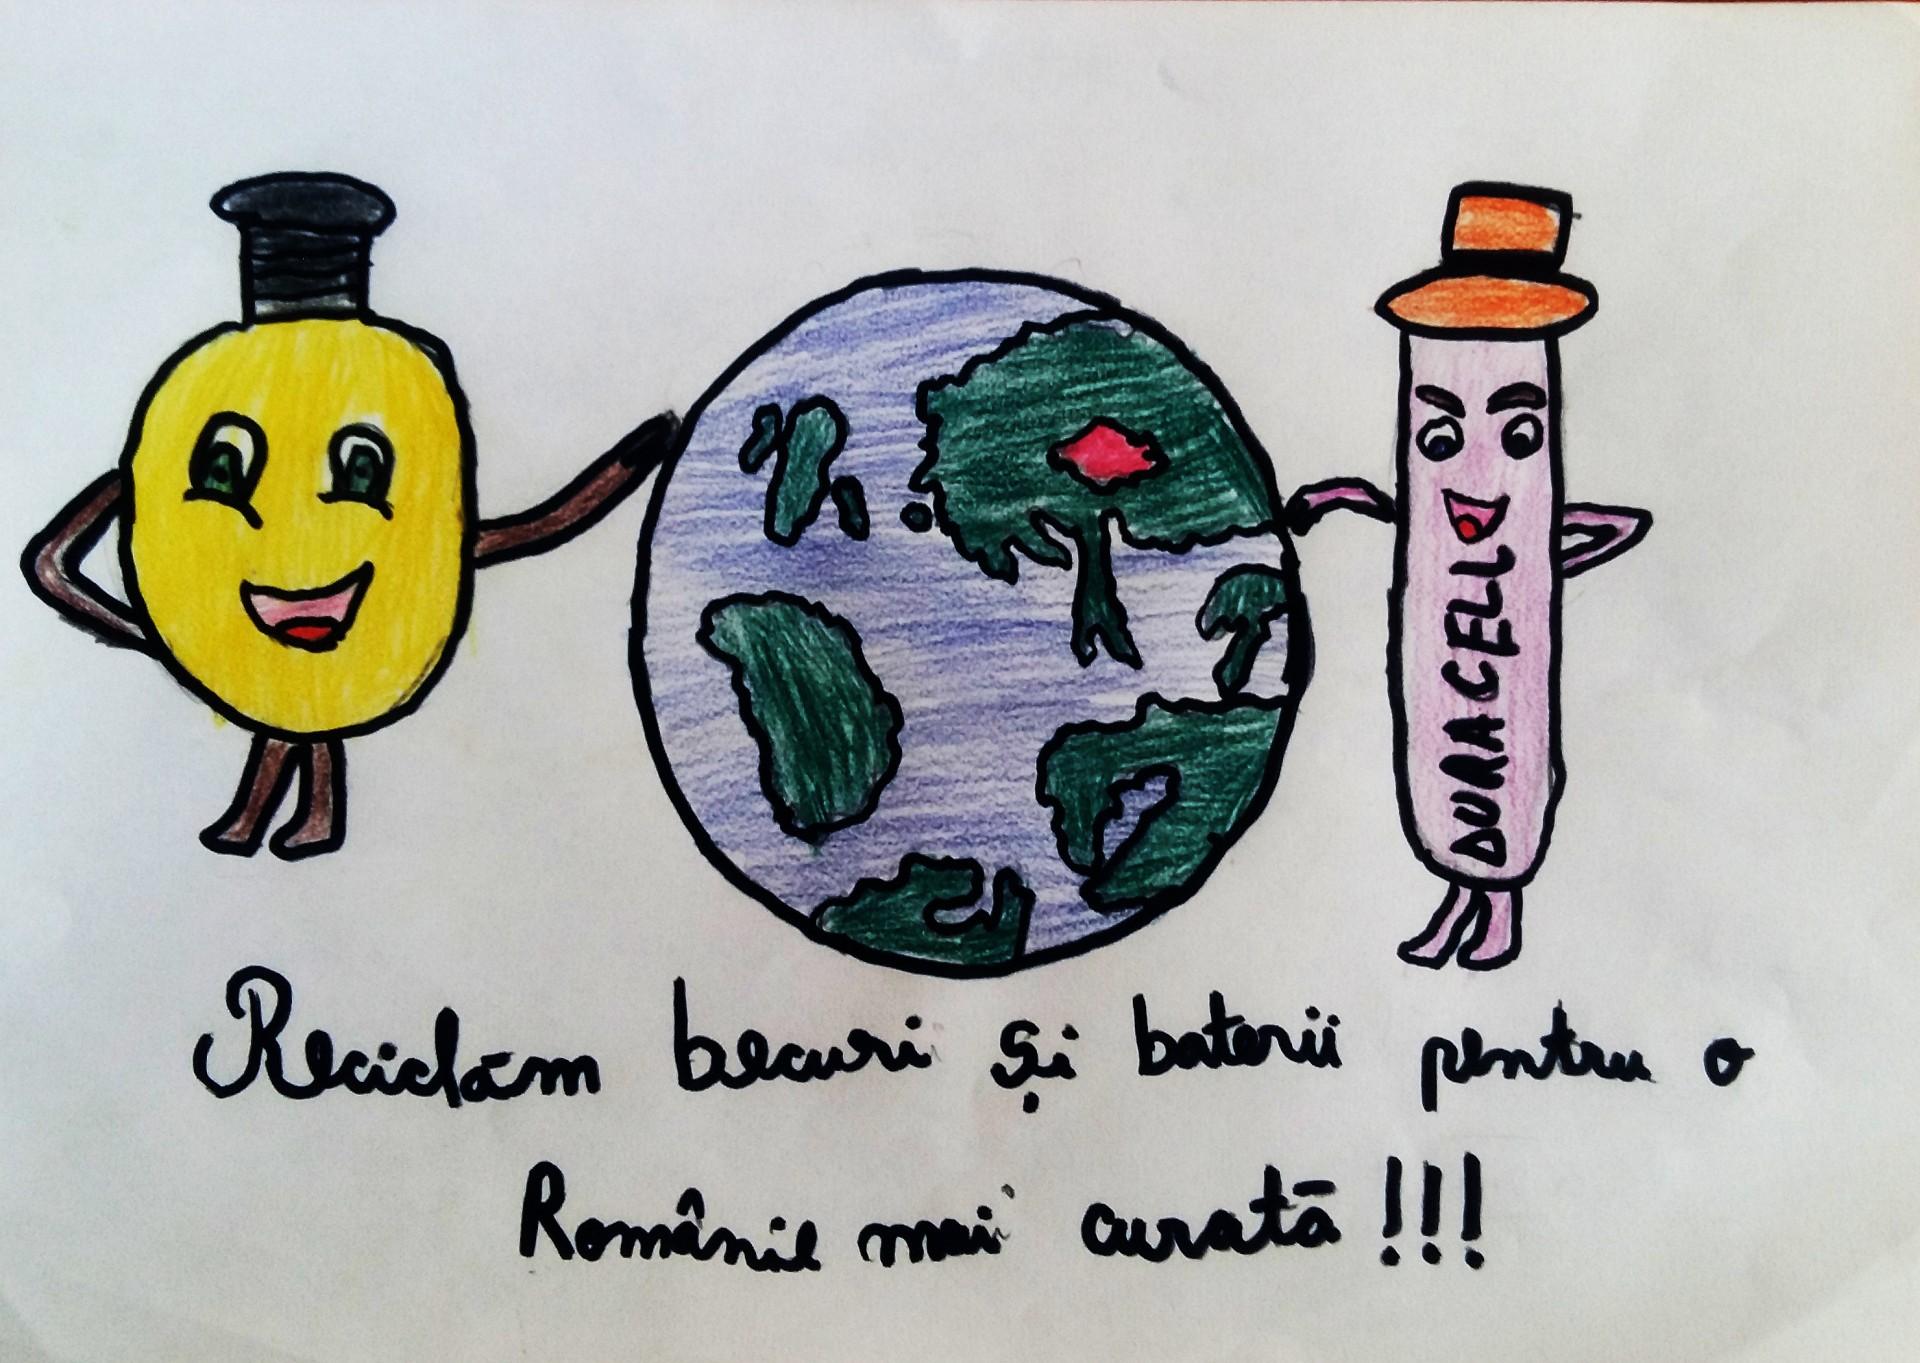 DURACELL
Reciclăm becuri și baterii pentru o
Românie mai curată!!!